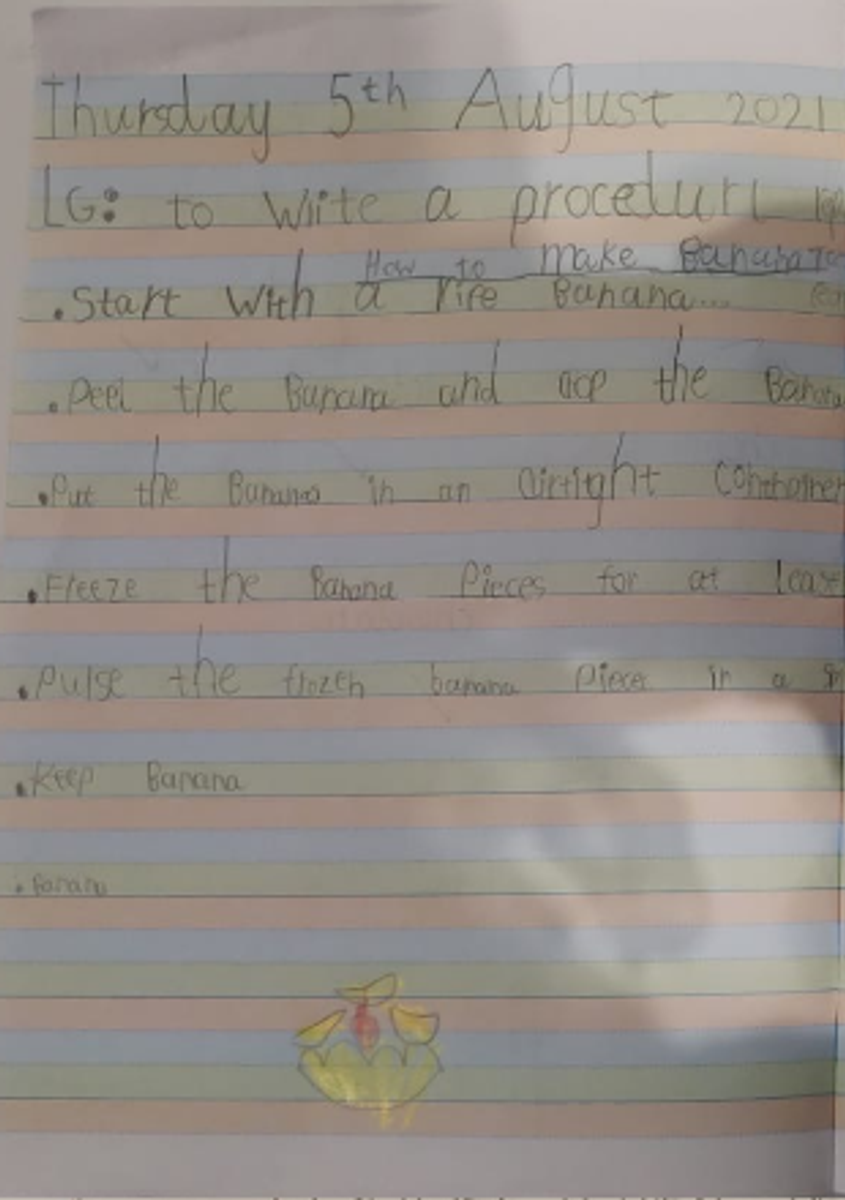 Thursday 5th August 2021
LG: to write a procedure
How to make Banana
.Start with a ripe Banana....
.Peel the Banana and the Banana
.Put the Banana in an airtight
.Freeze the Banana Pieces for at least
.Pulse the frozen banana piece in a
.Keep Banana
.Banana